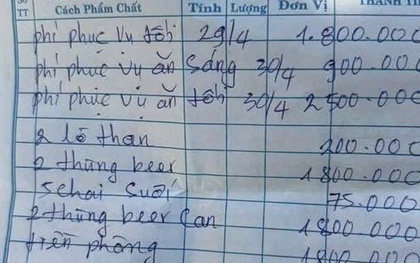 Số TT Cách Phẩm Chất Tính Lượng Đơn Vị THÀNH TI
phí phục vụ tối 29/4 1.800.000
phí phục vụ ăn sáng 30/4 900.000
phí phục vụ ăn tối 30/4 2500.000
2 lò than 200.000
2 thùng beer 1800.000
5 chai suối 75.000
2 thùng beer can 1800.000
tiền phòng 1800.000